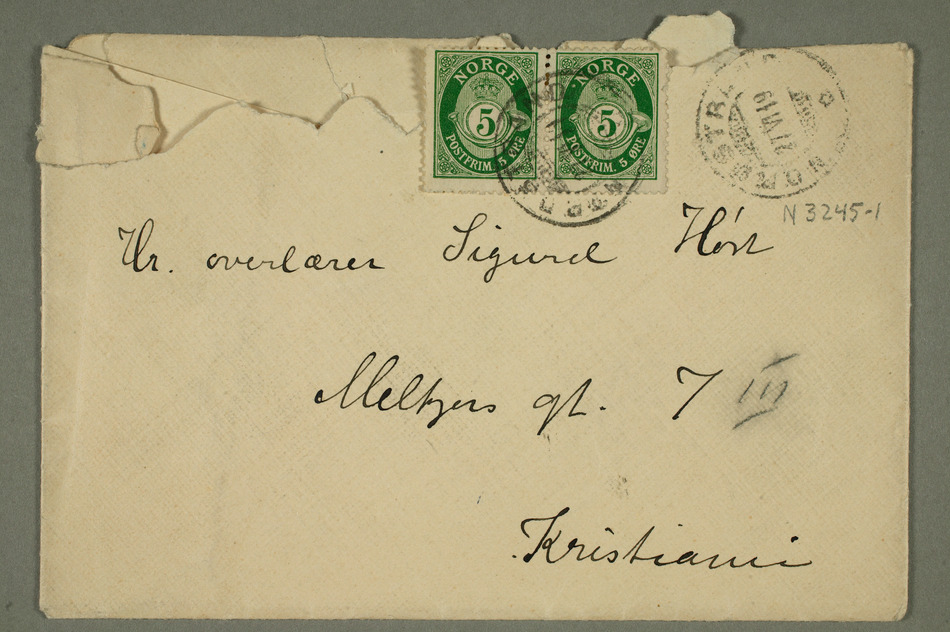 NORGE
5
POSTFRIM. 5 ØRE
NORGE
5
POSTFRIM. 5 ØRE
NORDSTRAND
27 VII 19
N 3245-1
Hr. overlærer Sigurd Höst
Meltzers gt. 7 III
Kristiania